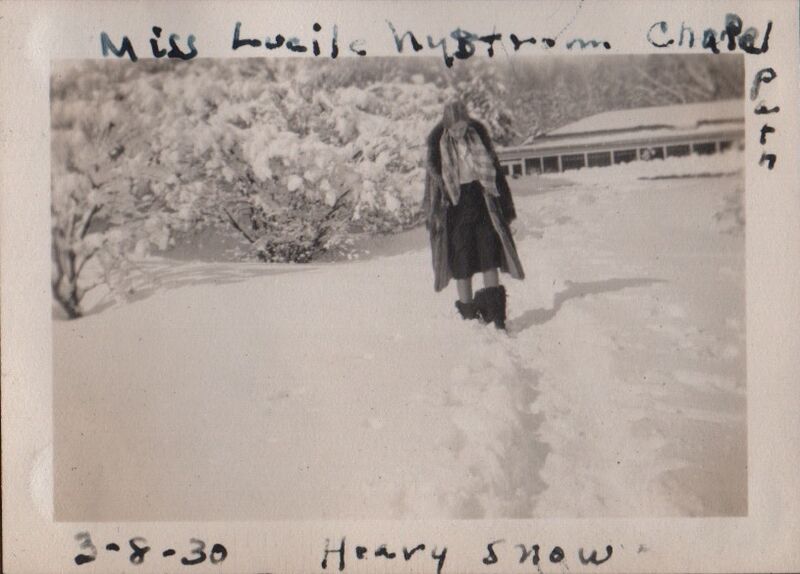 Miss Lucile Nystroom Chapel
Path
3-8-30 Heavy Snow